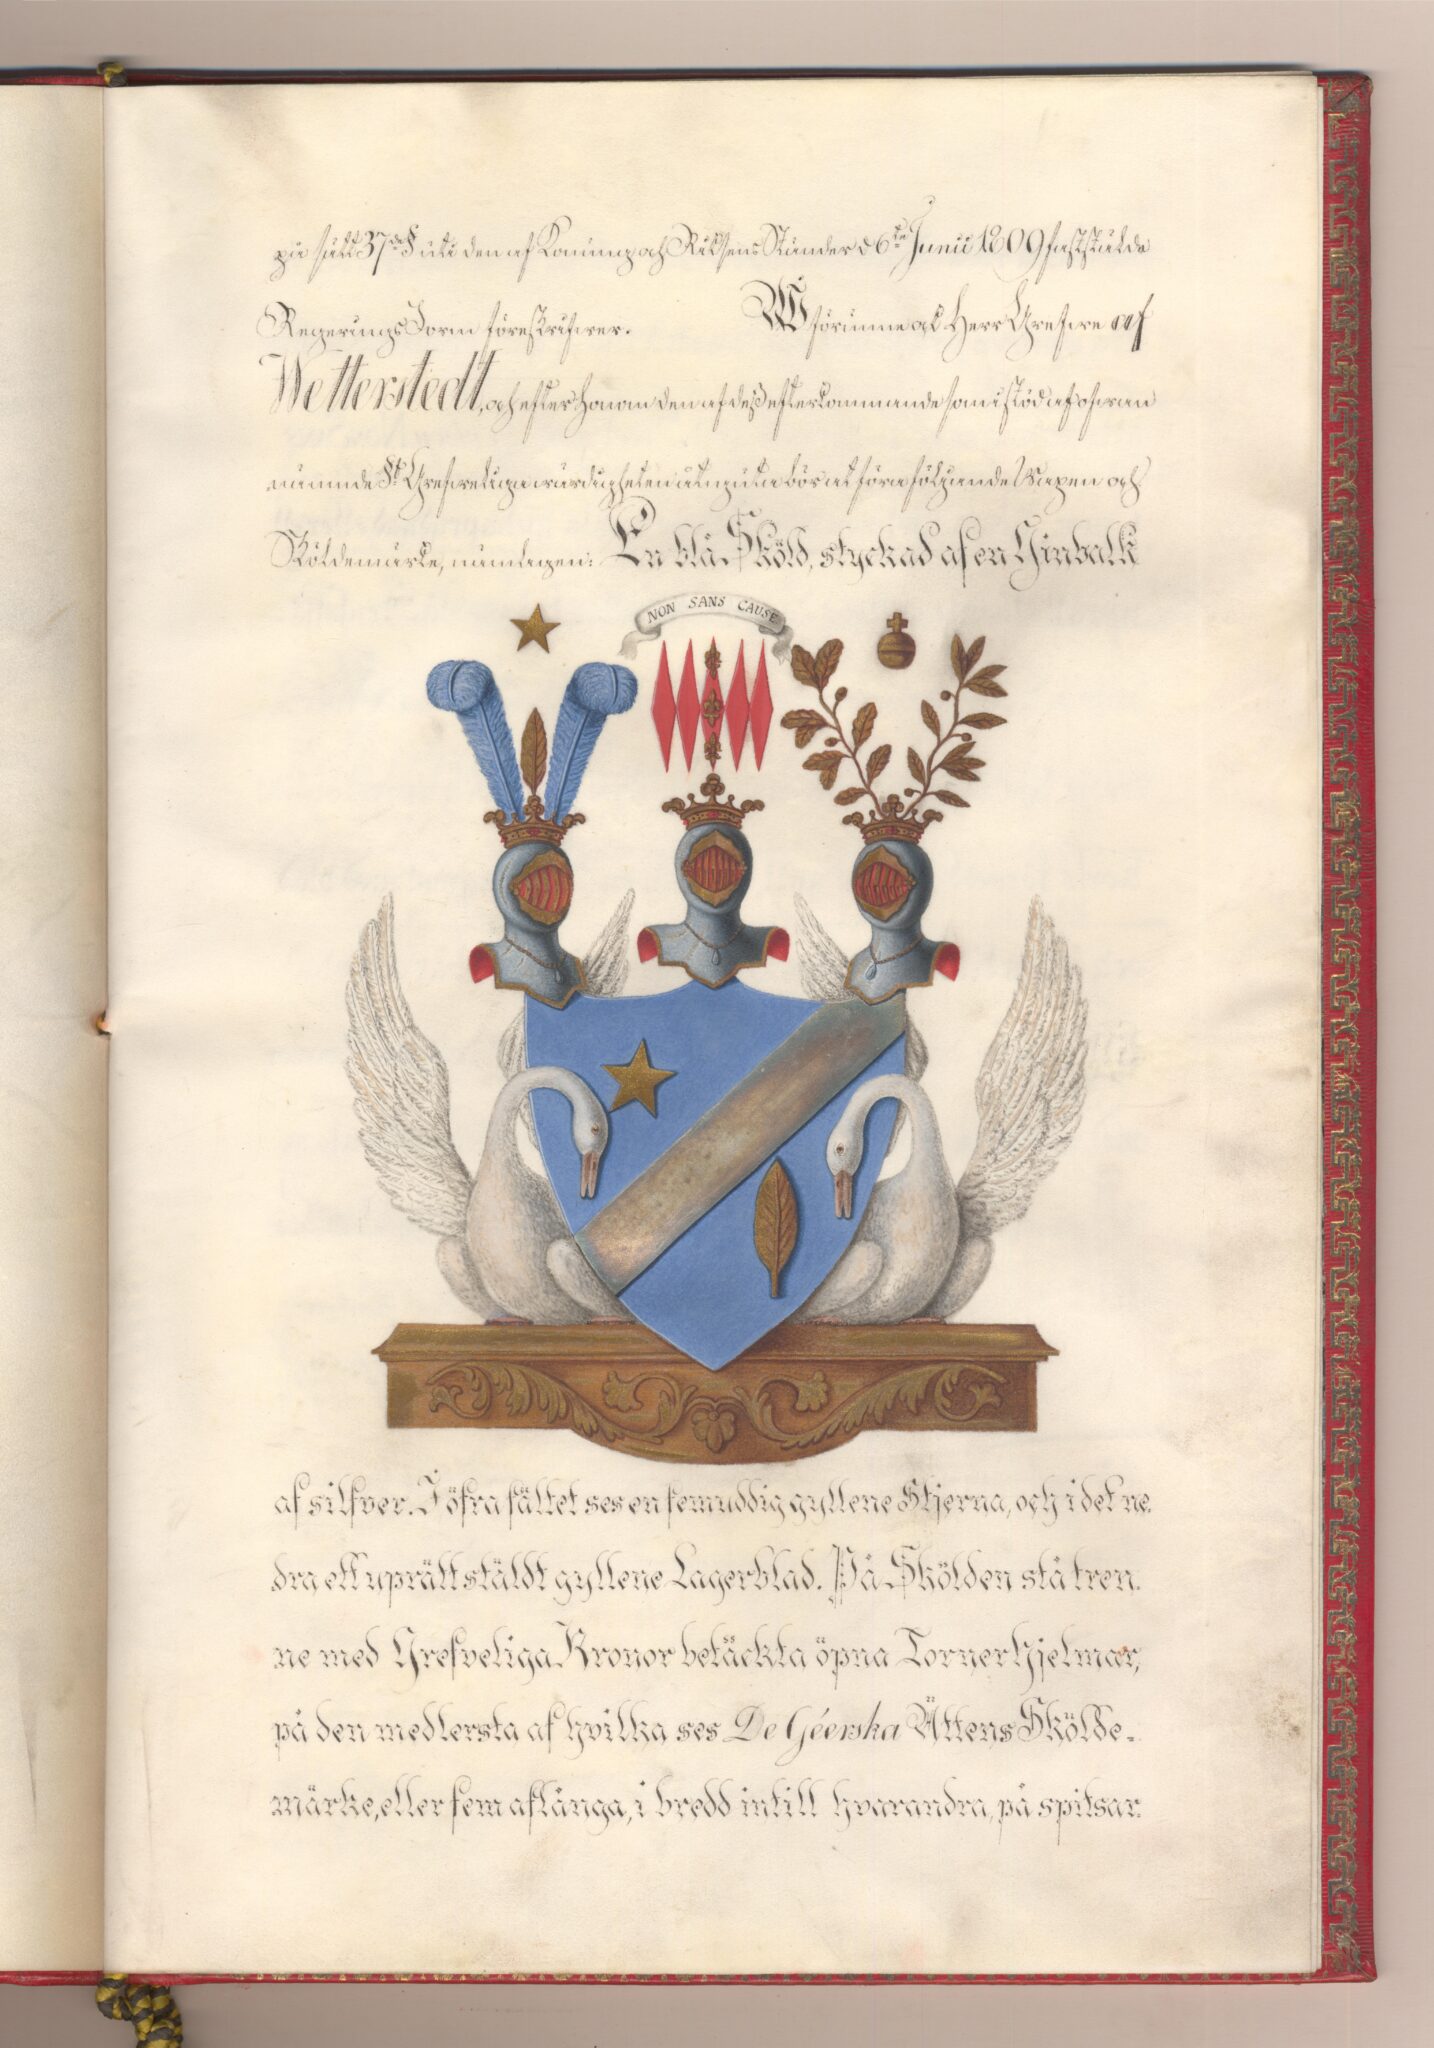 på sätt 37de § uti den af Konung och Riksens Ständer d 6te Junii 1809 fastställde
Regerings Form föreskrifver. Wförinne ak Herr Grefve af
Wetterstedt, och efter honom den af deß efterkommande som i stöd af ofvan
nämnde §t Grefveliga värdigheten åtnjuta bör at föra följande Wapen och
Sköldemärke, nämligen: En blå Sköld, styckad af en Ginbalk
NON SANS CAUSE
af silfver. I öfra fältet ses en femuddig gyllene Stjerna, och i det ne-
dra ett uprätt stäldt gyllene Lagerblad. På Skölden stå tren-
ne med Grefveliga Kronor betäckta öpna Tornerhjelmar,
på den medlersta af hvilka ses De Géerska Ättens Skölde-
märke, eller fem aflånga, i bredd intill hvarandra, på spitsar-